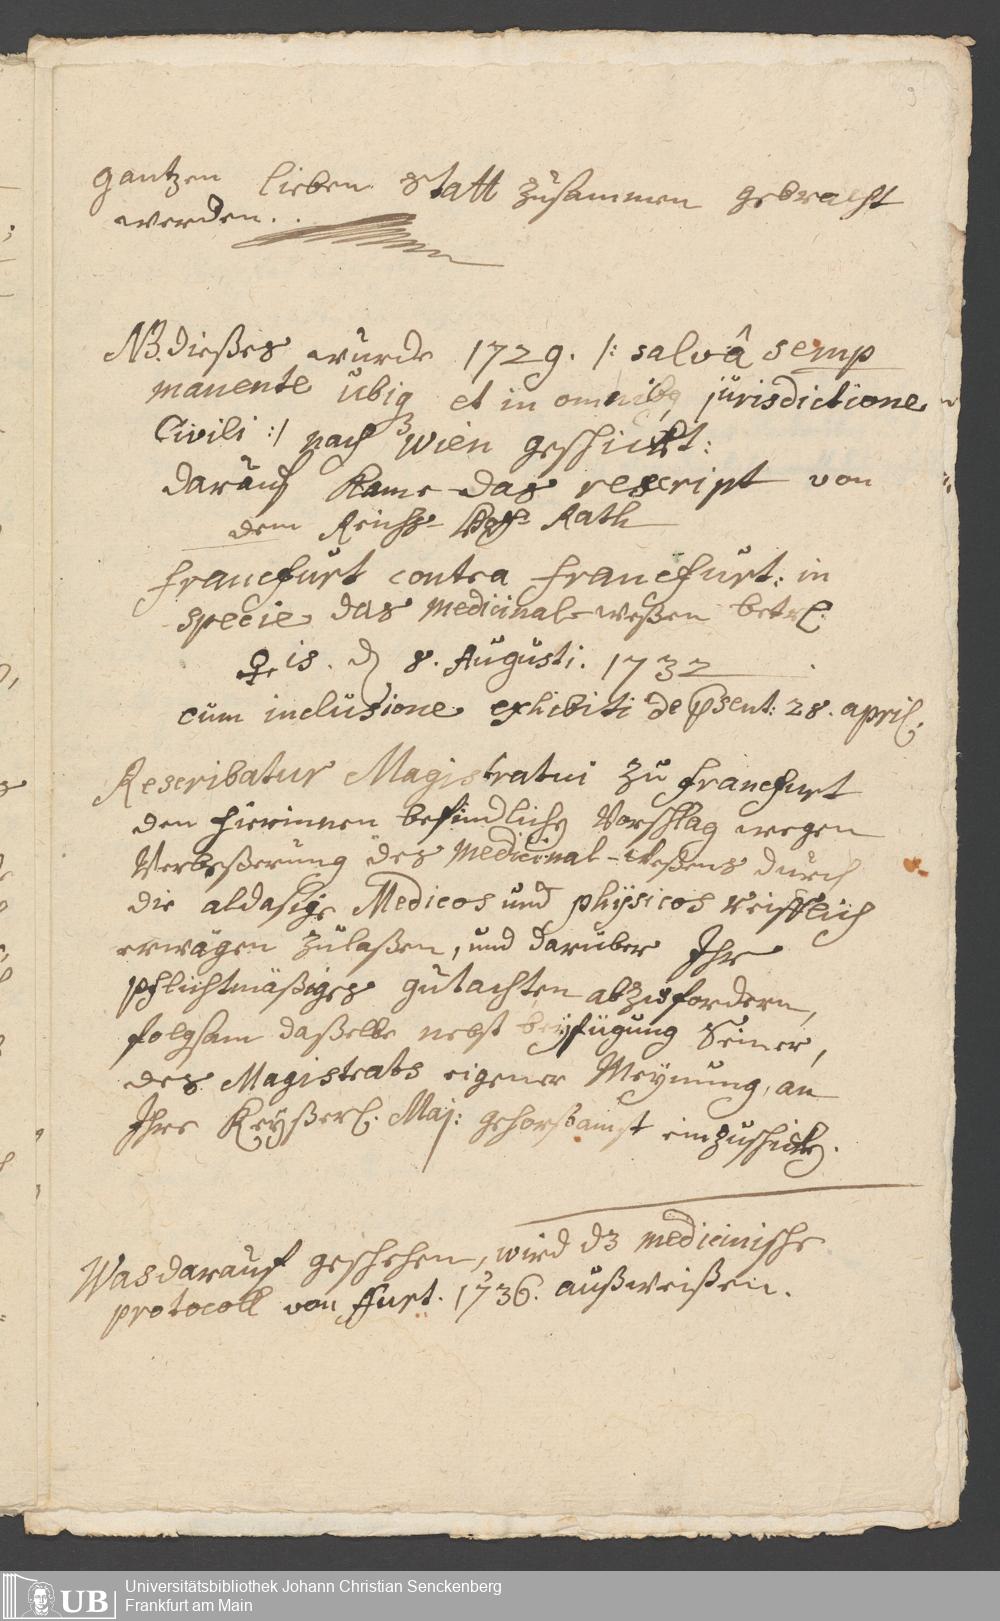 9
gantzen lieben Statt zusammen gebracht
werden..
NB. dießes wurde 1729. /: salvâ semp
manente ubiq et in omnibq jurisdictione
Civili :/ nach Wien geschickt:
darauf kame das rescript von
dem Reichs-Hoff-Rath
Francfurt contra Francfurt: in
specie das medicinal-weßen betrl.
♀is. d 8. Augusti. 1732
cum inclusione exhibiti de psent: 28. april.
Rescribatur Magistratui zu Francfurt
den hierinnen befindliche Vorschlag wegen
Verbeßerung des Medicinal-Weßens durch
die aldasige Medicos und physicos reifflich
erwägen zulaßen, und darüber Ihr
pflichtmäßiges gutachten abzufordern,
folgsam daßelbe nebst beyfügung Seiner,
des Magistrats eigener Meynung, an
Ihre Keyßerl. Maj: gehorsamst einzuschicke.
Was darauf geschehen, wird dz medicinische
protocoll von ffurt. 1736. außweißen.
UB
Universitätsbibliothek Johann Christian Senckenberg
Frankfurt am Main